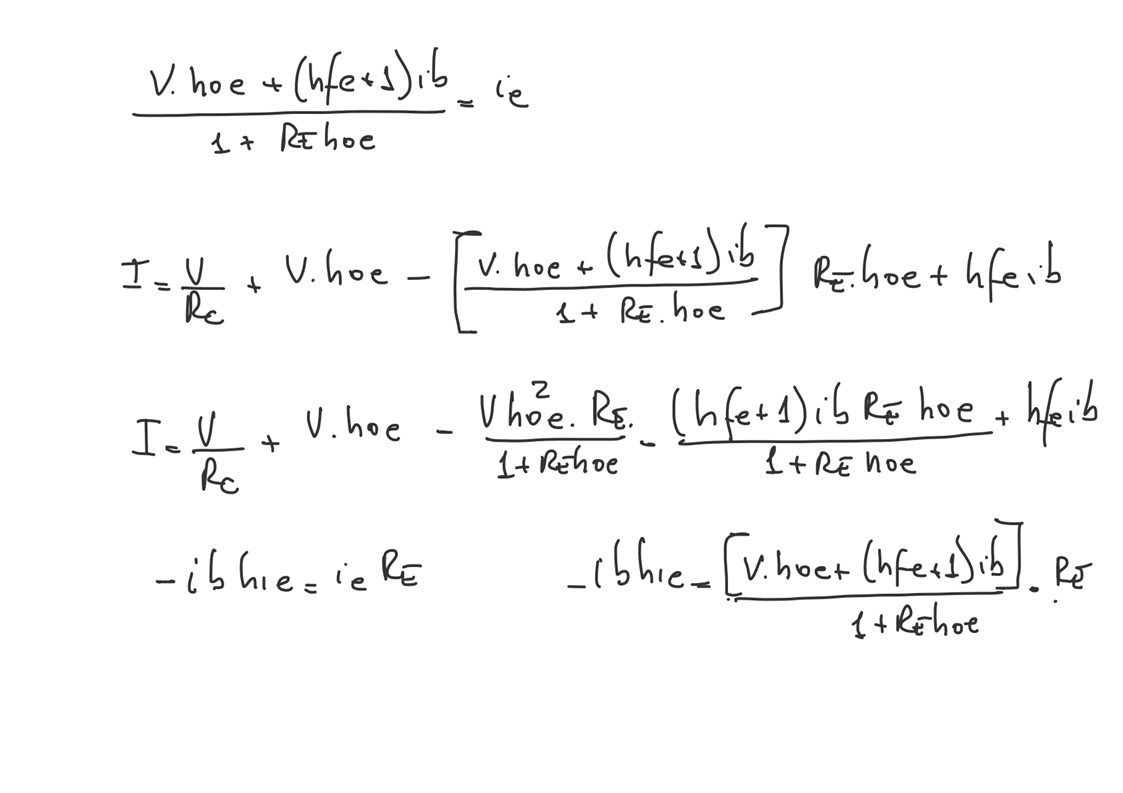 (V. hoe + (hfe+1)ib)/(1 + RE hoe) = ie
I = V/RC + V.hoe - [(V. hoe + (hfe+1)ib)/(1 + RE. hoe)] RE.hoe + hfe ib
I = V/RC + V.hoe - (V hoe². RE.)/(1+REhoe) - ((hfe+1)ib RE hoe)/(1+RE hoe) + hfeib
-ib hie = ie RE -ibhie = [V.hoe+ (hfe+1)ib]/(1+REhoe) . RE